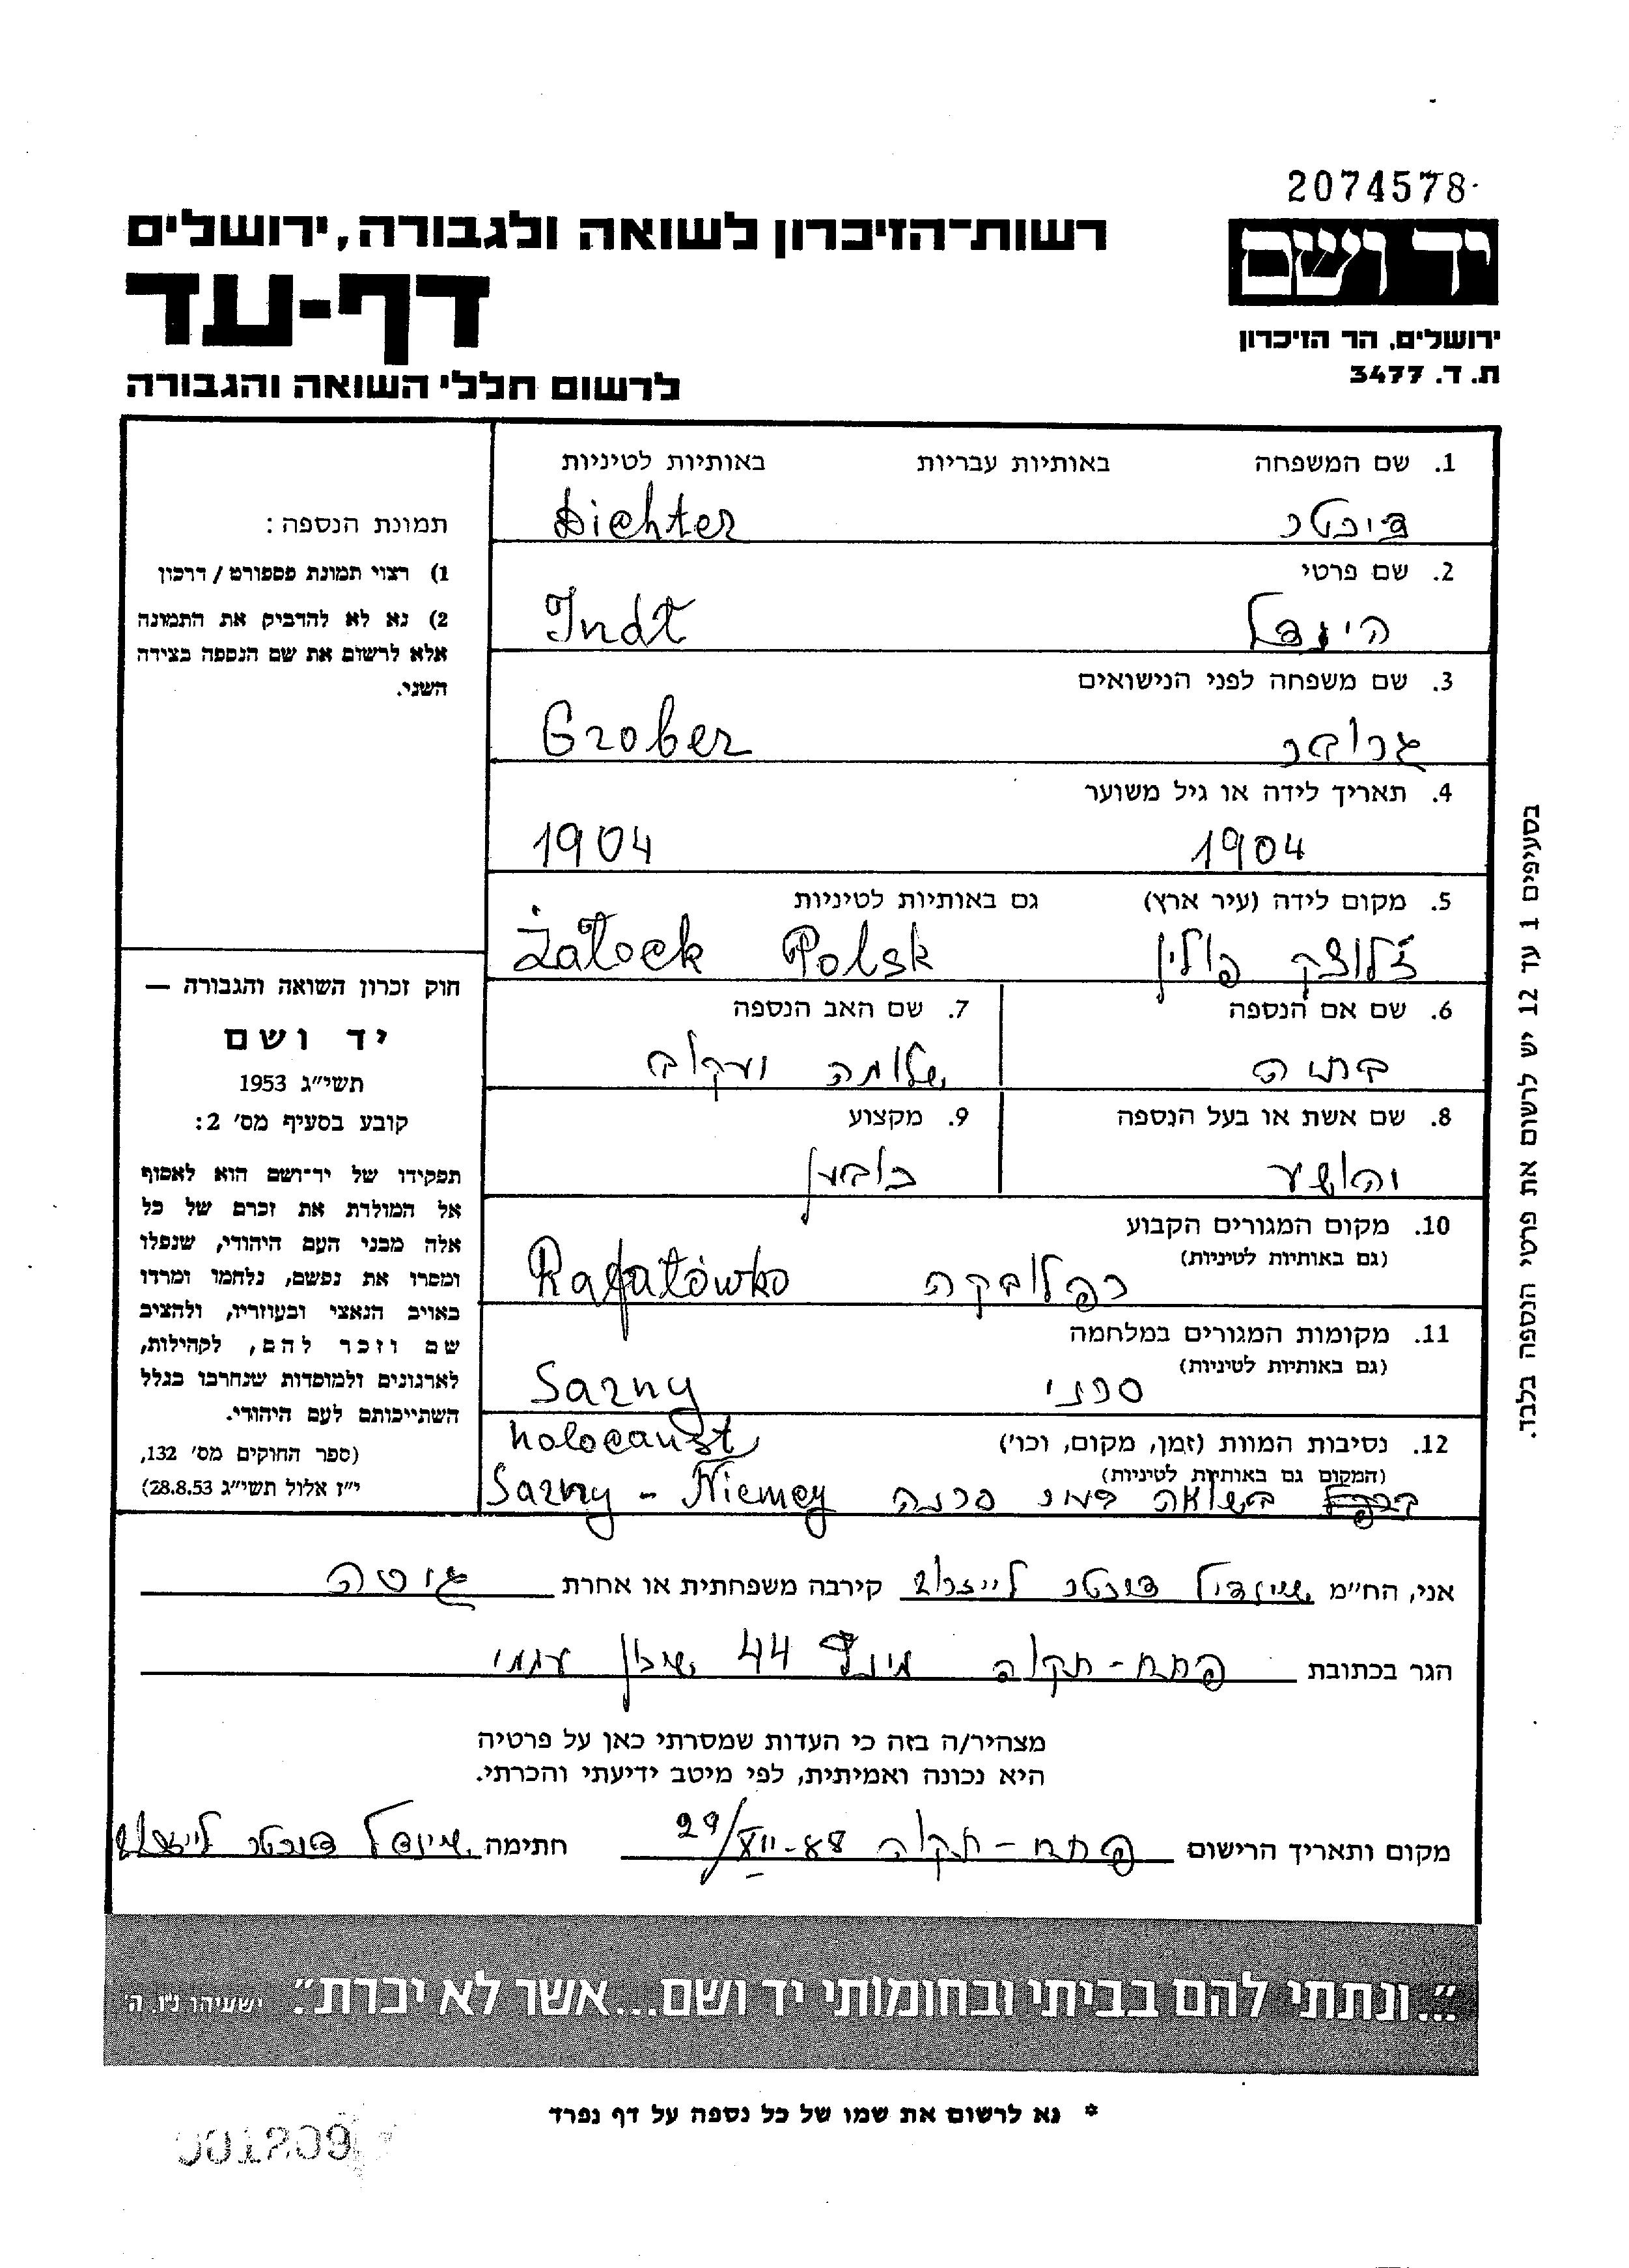 2074578
רשות־הזיכרון לשואה ולגבורה, ירושלים
יד ושם
דף-עד
ירושלים, הר הזיכרון
ת. ד. 3477
לרשום חללי השואה והגבורה
1. שם המשפחה באותיות עבריות באותיות לטיניות
דיכטר Dichter
2. שם פרטי
הינדל Indt
3. שם משפחה לפני הנישואים
גרובר Grober
4. תאריך לידה או גיל משוער
1904 1904
5. מקום לידה (עיר ארץ) גם באותיות לטיניות
פולין Żatock Polsk
6. שם אם הנספה 7. שם האב הנספה
בתיה שלומה יעקוב
8. שם אשת או בעל הנספה 9. מקצוע
יהושע
10. מקום המגורים הקבוע
(גם באותיות לטיניות)
רפלובקה Rafatówko
11. מקומות המגורים במלחמה
(גם באותיות לטיניות)
סרני Sarny
12. נסיבות המוות (זמן, מקום, וכו') holocaust
(המקום גם באותיות לטיניות)
בשואה Sarny - Niemcy
תמונת הנספה:
1) רצוי תמונת פספורט / דרכון
2) נא לא להדביק את התמונה
אלא לרשום את שם הנספה בצידה
השני.
חוק זכרון השואה והגבורה —
יד ושם
תשי״ג 1953
קובע בסעיף מס׳ 2:
תפקידו של יד־ושם הוא לאסוף
אל המולדת את זכרם של כל
אלה מבני העם היהודי, שנפלו
ומסרו את נפשם, נלחמו ומרדו
באויב הנאצי ובעוזריו, ולהציב
שם וזכר להם, לקהילות,
לארגונים ולמוסדות שנחרבו בגלל
השתייכותם לעם היהודי.
(ספר החוקים מס׳ 132,
י״ז אלול תשי״ג 28.8.53)
בסעיפים 1 עד 12 יש לרשום את פרטי הנספה בלבד.
אני, הח״מ שיינדיל דיכטר לייזרוב קירבה משפחתית או אחרת גיסה
הגר בכתובת פתח-תקוה 44 שיכון עממי
מצהיר/ה בזה כי העדות שמסרתי כאן על פרטיה
היא נכונה ואמיתית, לפי מיטב ידיעתי והכרתי.
מקום ותאריך הרישום פתח-תקוה 29/VII-88 חתימה שיינדל דיכטר לייזרוב
״...ונתתי להם בביתי ובחומותי יד ושם...אשר לא יכרת״. ישעיהו נ״ו, ה׳
* נא לרשום את שמו של כל נספה על דף נפרד